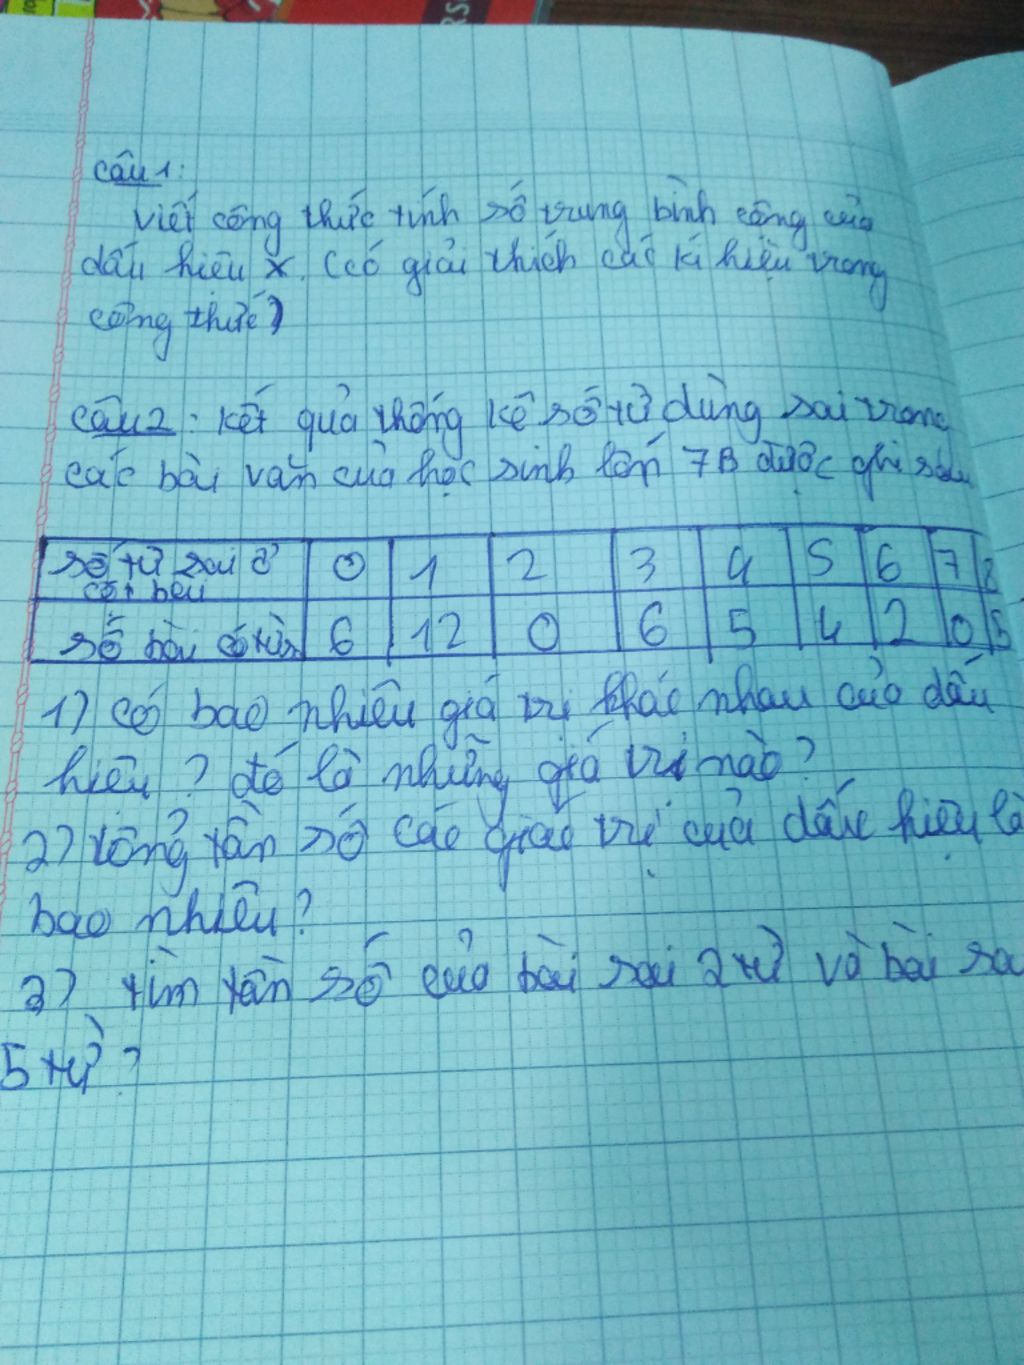 Câu 1:
Viết công thức tính số trung bình cộng của
dấu hiệu X. (có giải thích các kí hiệu trong
công thức)
Câu 2: Kết quả thống kê số từ dùng sai trong
các bài văn của học sinh lớp 7B được ghi sau
số từ sai ở 0 1 2 3 4 5 6 7 8
số bài có 6 12 0 6 5 4 2 0 5
1) có bao nhiêu giá trị khác nhau của dấu
hiệu? đó là những giá trị nào?
2) tổng tần số các giác trị của dấu hiệu là
bao nhiêu?
3) tìm tần số của bài sai 2 từ và bài sa
5 từ?